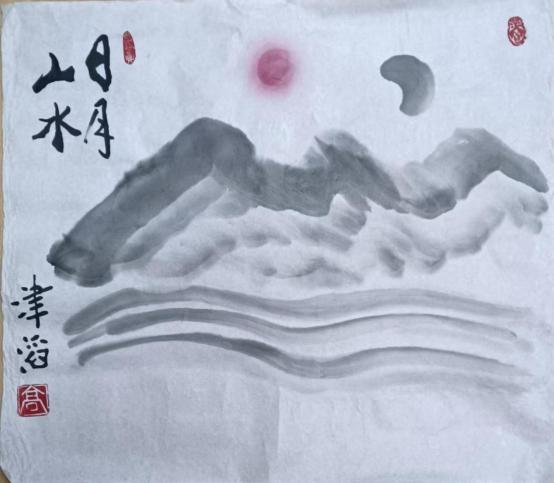 日月
山水
津滔
高